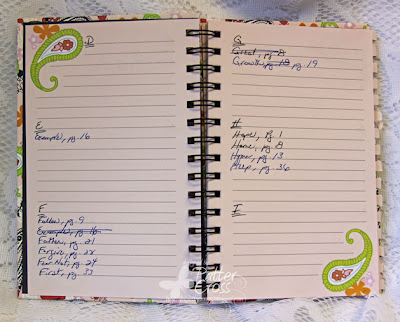 D
E
Example, pg. 16
F
pg. 9
Example, pg. 16
Father, pg. 21
Forgive, pg. 22
Fear Not, pg. 24
First, pg. 33
G
Great, pg. 8
Growth, pg. 18 pg. 19
H
Hope, pg. 1
Home, pg. 8
pg. 13
Help, pg. 36
I
Patter
Cross